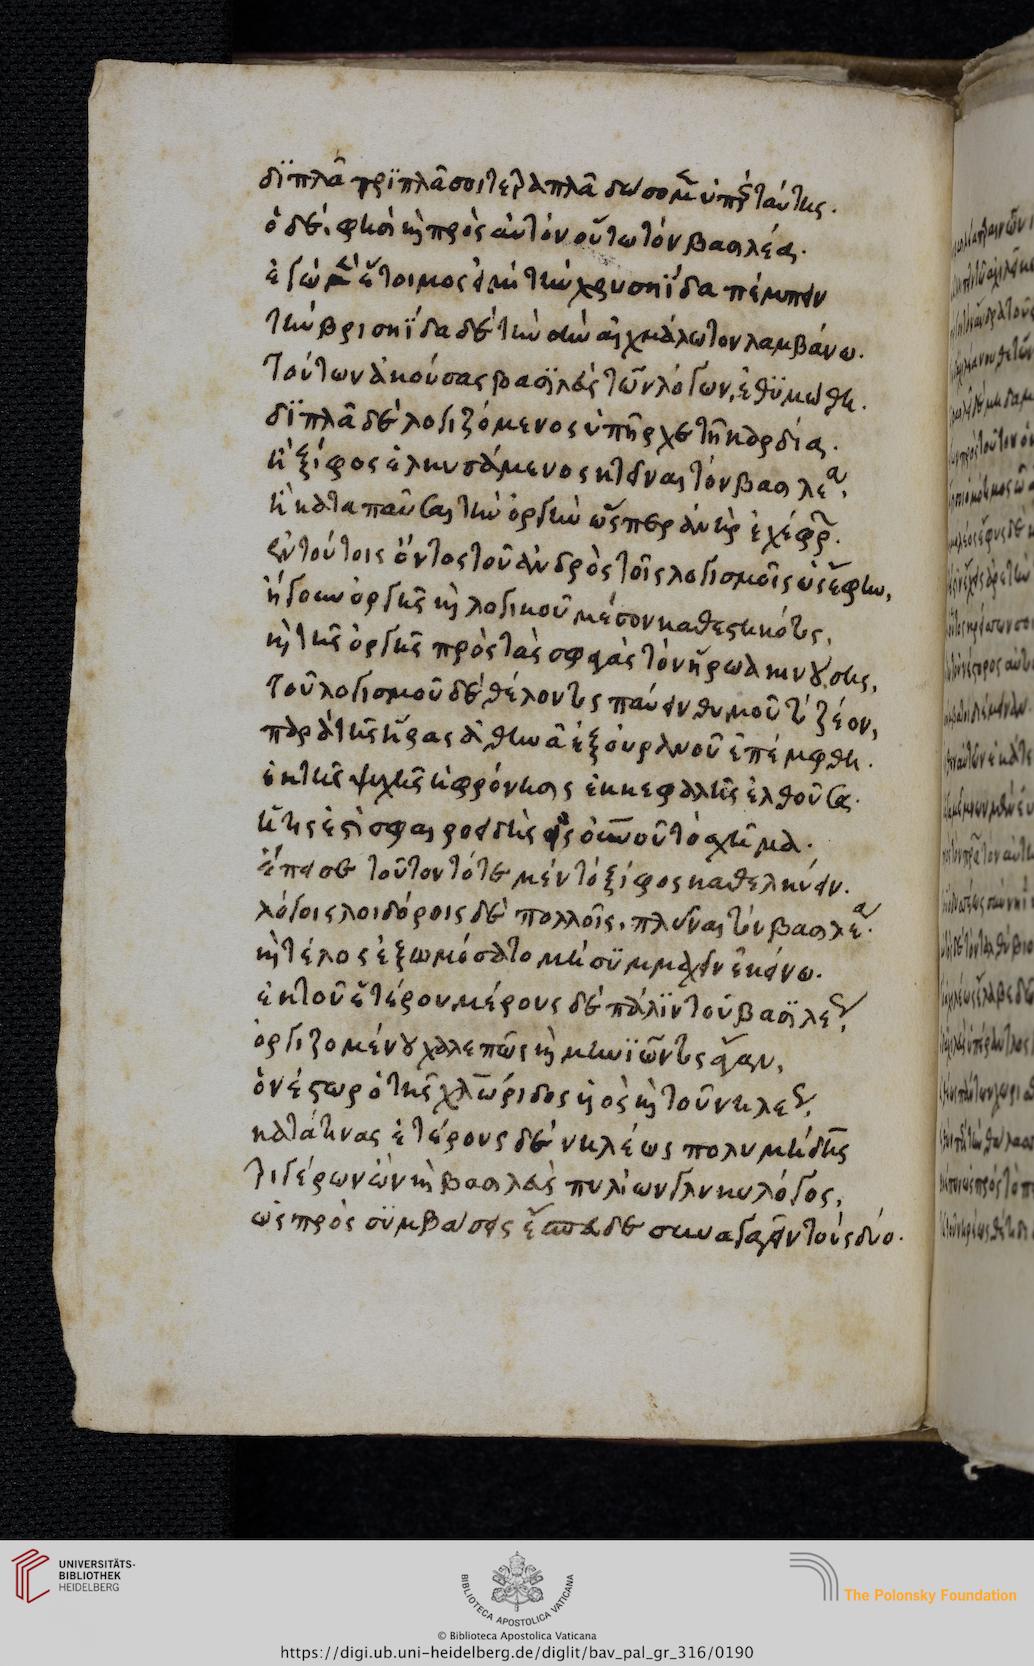 διπλᾶ τριπλᾶ σοι τετραπλᾶ δώσομεν ὑπὲρ ταύτης.
ὁ δέ, φησὶ καὶ πρὸς αὐτὸν οὕτω τὸν βασιλέα.
ἐγὼ μὲν ἕτοιμος εἰμὶ τὴν χρυσηΐδα πέμπειν
τὴν βρισηΐδα δὲ τὴν σὴν αἰχμάλωτον λαμβάνω.
Τούτων ἀκούσας βασιλεὺς τῶν λόγων, ἐθυμώθη.
διπλᾶ δὲ λογιζόμενος ὑπῆρχε τῇ καρδίᾳ.
ἢ ξίφος ἑλκυσάμενος κτεῖναι τὸν βασιλέα,
ἢ καταπαῦσαι τὴν ὀργὴν ὥσπερ ἀνὴρ ἐχέφρων.
ἐν τούτοις ὄντος τοῦ ἀνδρὸς τοῖς λογισμοῖς ὡς ἔφην,
ἤγουν ὀργῆς καὶ λογικοῦ μέσον καθεστηκότος,
καὶ τῆς ὀργῆς πρὸς τὰς σφαγὰς τὸν ἥρωα κινούσης,
τοῦ λογισμοῦ δὲ θέλοντος παύειν θυμοῦ τὸ ζέον,
παρὰ τῆς ἥρας ἀθηνᾶ ἐξ οὐρανοῦ ἐπέμφθη.
ἐκ τῆς ψυχῆς ἡ φρόνησις ἐκ κεφαλῆς ἐλθοῦσα.
ἥτις ἐστὶ σφαιροειδὴς ὡς οὐρανοῦ τὸ σχῆμα.
ἔπεισε τοῦτον τότε μὲν τὸ ξίφος καθελκύειν.
λόγοις λοιδόροις δὲ πολλοῖς, πλῦναι τὸν βασιλέα.
καὶ τέλος ἐξωμόσατο μὴ συμμαχεῖν ἐκείνω.
ἐκ τοῦ ἑτέρου μέρους δὲ πάλιν τοῦ βασιλέως,
ὀργιζομένου χαλεπῶς καὶ μηνιῶντος ἦσαν,
ὁ νέστωρ ὁ τῆς χλώριδος υἱὸς καὶ τοῦ νηλέως,
κατά τινας ἑτέρους δὲ νηλέως πολυμήδης
τιγέρων ὢν καὶ βασιλεὺς πυλίων γλυκυλόγος,
ὡς πρὸς συμβάσεις ἔσπευδε συναγαγεῖν τοὺς δύο.
UNIVERSITÄTS-
BIBLIOTHEK
HEIDELBERG
BIBLIOTECA APOSTOLICA VATICANA
The Polonsky Foundation
© Biblioteca Apostolica Vaticana
https://digi.ub.uni-heidelberg.de/diglit/bav_pal_gr_316/0190